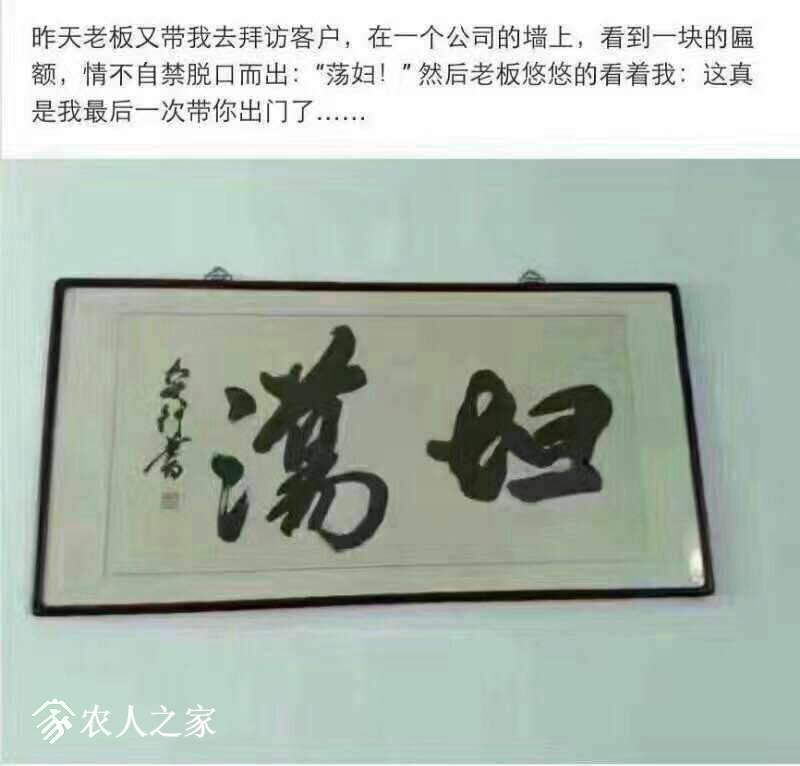 昨天老板又带我去拜访客户，在一个公司的墙上，看到一块的匾
额，情不自禁脱口而出：“荡妇！” 然后老板悠悠的看着我：这真
是我最后一次带你出门了……
坦蕩
农人之家